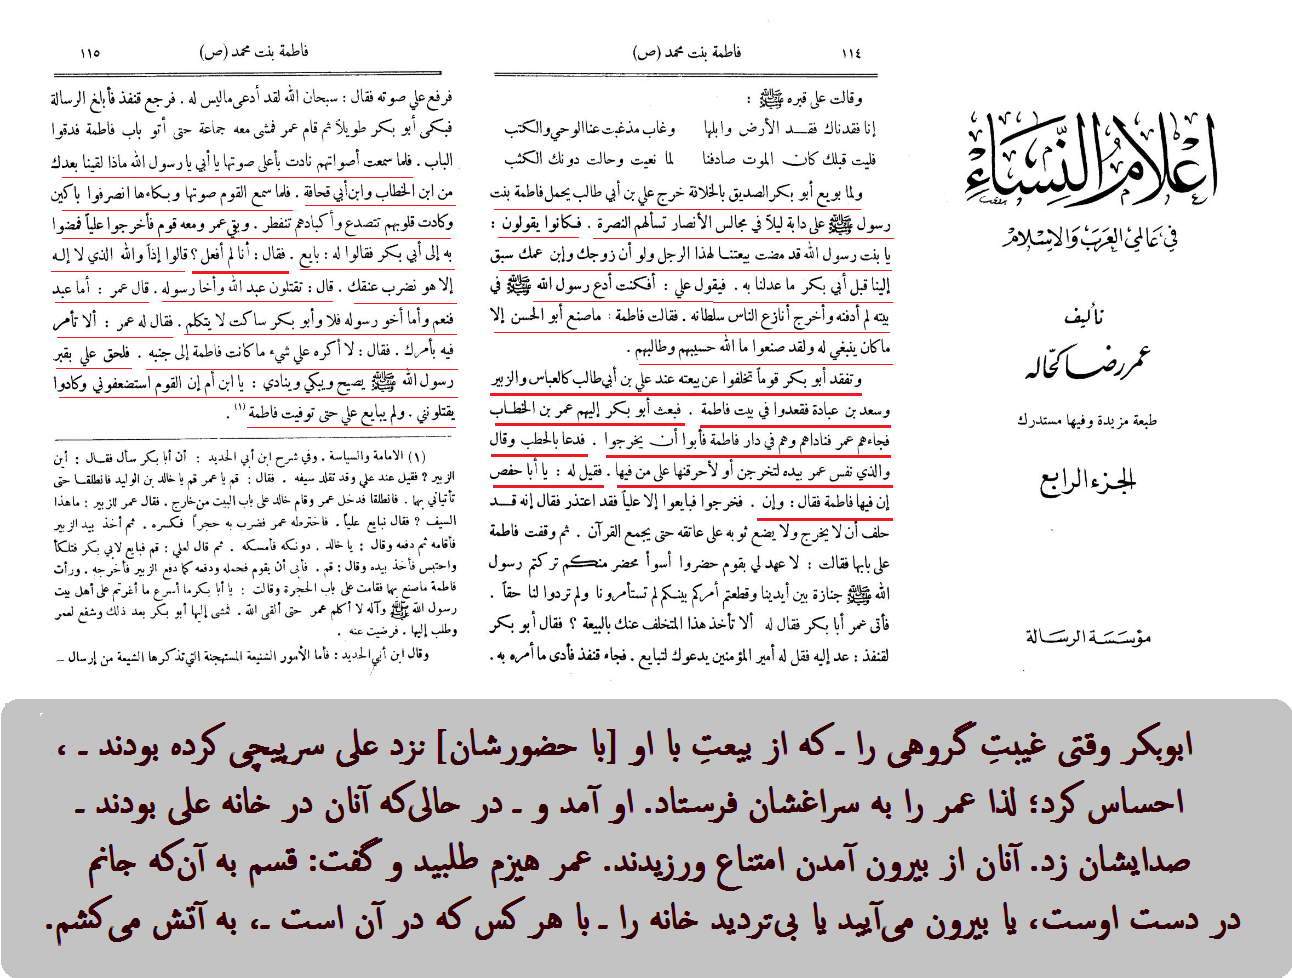 اعلام النساء
في عالمي العرب والاسلام
تأليف
عمر رضا كحاله
طبعة مزيدة وفيها مستدرك
الجزء الرابع
مؤسسة الرسالة
١١٤
فاطمة بنت محمد (ص)
وقالت على قبره ﷺ :
إنا فقدناك فقد الأرض وابلها وغاب مذغبت عنا الوحي والكتب
فليت قبلك كان الموت صادفنا لما نعيت وحالت دونك الكثب
ولما بويع أبو بكر الصديق بالخلافة خرج علي بن أبي طالب يحمل فاطمة بنت
رسول ﷺ على دابة ليلاً في مجالس الأنصار تسألهم النصرة . فكانوا يقولون :
يا بنت رسول الله قد مضت بيعتنا لهذا الرجل ولو أن زوجك وإبن عمك سبق
إلينا قبل أبي بكر ما عدلنا به . فيقول علي : أفكنت أدع رسول الله ﷺ في
بيته لم أدفنه وأخرج أنازع الناس سلطانه . فقالت فاطمة : ماصنع أبو الحسن إلا
ماكان ينبغي له ولقد صنعوا ما الله حسيبهم وطالبهم .
وتفقد أبو بكر قوماً تخلفوا عن بيعته عند علي بن أبي طالب كالعباس والزبير
وسعد بن عبادة فقعدوا في بيت فاطمة . فبعث أبو بكر إليهم عمر بن الخطاب
فجاءهم عمر فناداهم وهم في دار فاطمة فأبوا أن يخرجوا . فدعا بالحطب وقال
والذي نفس عمر بيده لتخرجن أو لأحرقنها على من فيها . فقيل له : يا أبا حفص
إن فيها فاطمة فقال : وإن . فخرجوا فبايعوا إلا علياً فقد اعتذر فقال إنه قد
حلف أن لا يخرج ولا يضع ثوبه على عاتقه حتى يجمع القرآن . ثم وقفت فاطمة
على بابها فقالت : لا عهد لي بقوم حضروا أسوأ محضر منكم تركتم رسول
الله ﷺ جنازة بين أيدينا وقطعتم أمركم بينكم لم تستأمرونا ولم تردوا لنا حقاً .
فأتى عمر أبا بكر فقال له ألا تأخذ هذا المتخلف عنك بالبيعة ؟ فقال أبو بكر
لقنفذ : عد إليه فقل له أمير المؤمنين يدعوك لتبايع . فجاء قنفذ فأدى ما أمره به .
فاطمة بنت محمد (ص)
١١٥
فرفع علي صوته فقال : سبحان الله لقد أدعى ماليس له . فرجع قنفذ فأبلغ الرسالة
فبكى أبو بكر طويلاً ثم قام عمر فمشى معه جماعة حتى أتو باب فاطمة فدقوا
الباب . فلما سمعت أصواتهم نادت بأعلى صوتها يا أبي يا رسول الله ماذا لقينا بعدك
من ابن الخطاب وابن أبي قحافة . فلما سمع القوم صوتها وبكاءها انصرفوا باكين
وكادت قلوبهم تتصدع وأكبادهم تنفطر . وبقي عمر ومعه قوم فأخرجوا علياً فمضوا
به إلى أبي بكر فقالوا له : بايع . فقال : أنا لم أفعل ؟ قالوا إذاً والله الذي لا إله
إلا هو نضرب عنقك . قال : تقتلون عبد الله وأخا رسوله . قال عمر : أما عبد
فنعم وأما أخو رسوله فلا وأبو بكر ساكت لا يتكلم . فقال له عمر : ألا تأمر
فيه بأمرك . فقال : لا أكره علي شيء ماكانت فاطمة إلى جنبه . فلحق علي بقبر
رسول الله ﷺ يصيح ويبكي وينادي : يا ابن أم إن القوم استضعفوني وكادوا
يقتلونني . ولم يبايع علي حتى توفيت فاطمة (١) .
(١) الامامة والسياسة . وفي شرح ابن أبي الحديد : أن أبا بكر سأل فقال : أين
الزبير ؟ فقيل عند علي وقد تقلد سيفه . فقال : قم يا عمر قم يا خالد بن الوليد فانطلقا حتى
تأتياني بهما . فانطلقا فدخل عمر وقام خالد على باب البيت من خارج . فقال عمر للزبير : ماهذا
السيف ؟ فقال نبايع علياً . فاخترطه عمر فضرب به حجراً فكسره . ثم أخذ بيد الزبير
فأقامه ثم دفعه وقال : يا خالد . دونكه فأمسكه . ثم قال لعلي : قم فبايع لابي بكر فتلكأ
واحتبس فأخذ بيده وقال : قم . فأبى أن يقوم فحمله ودفعه كما دفع الزبير فأخرجه . ورأت
فاطمة ماصنع بهما فقامت على باب الحجرة وقالت : يا أبا بكر ما أسرع ما أغرتم على أهل بيت
رسول الله ﷺ وآله لا أكلم عمر حتى ألقى الله . فمشى إليها أبو بكر بعد ذلك وشفع لعمر
وطلب إليها . فرضيت عنه .
وقال ابن أبي الحديد : فأما الأمور الشنيعة المستهجنة التي تذكرها الشيعة من إرسال ــ
ابوبکر وقتی غیبتِ گروهی را ـ که از بیعتِ با او [با حضورشان] نزد علی سرپیچی کرده بودند ـ ،
احساس کرد؛ لذا عمر را به سراغشان فرستاد. او آمد و ـ در حالی‌که آنان در خانه علی بودند ـ
صدایشان زد. آنان از بیرون آمدن امتناع ورزیدند. عمر هیزم طلبید و گفت: قسم به آن‌که جانم
در دست اوست، یا بیرون می‌آیید یا بی‌تردید خانه را ـ با هر کس که در آن است ـ، به آتش می‌کشم.